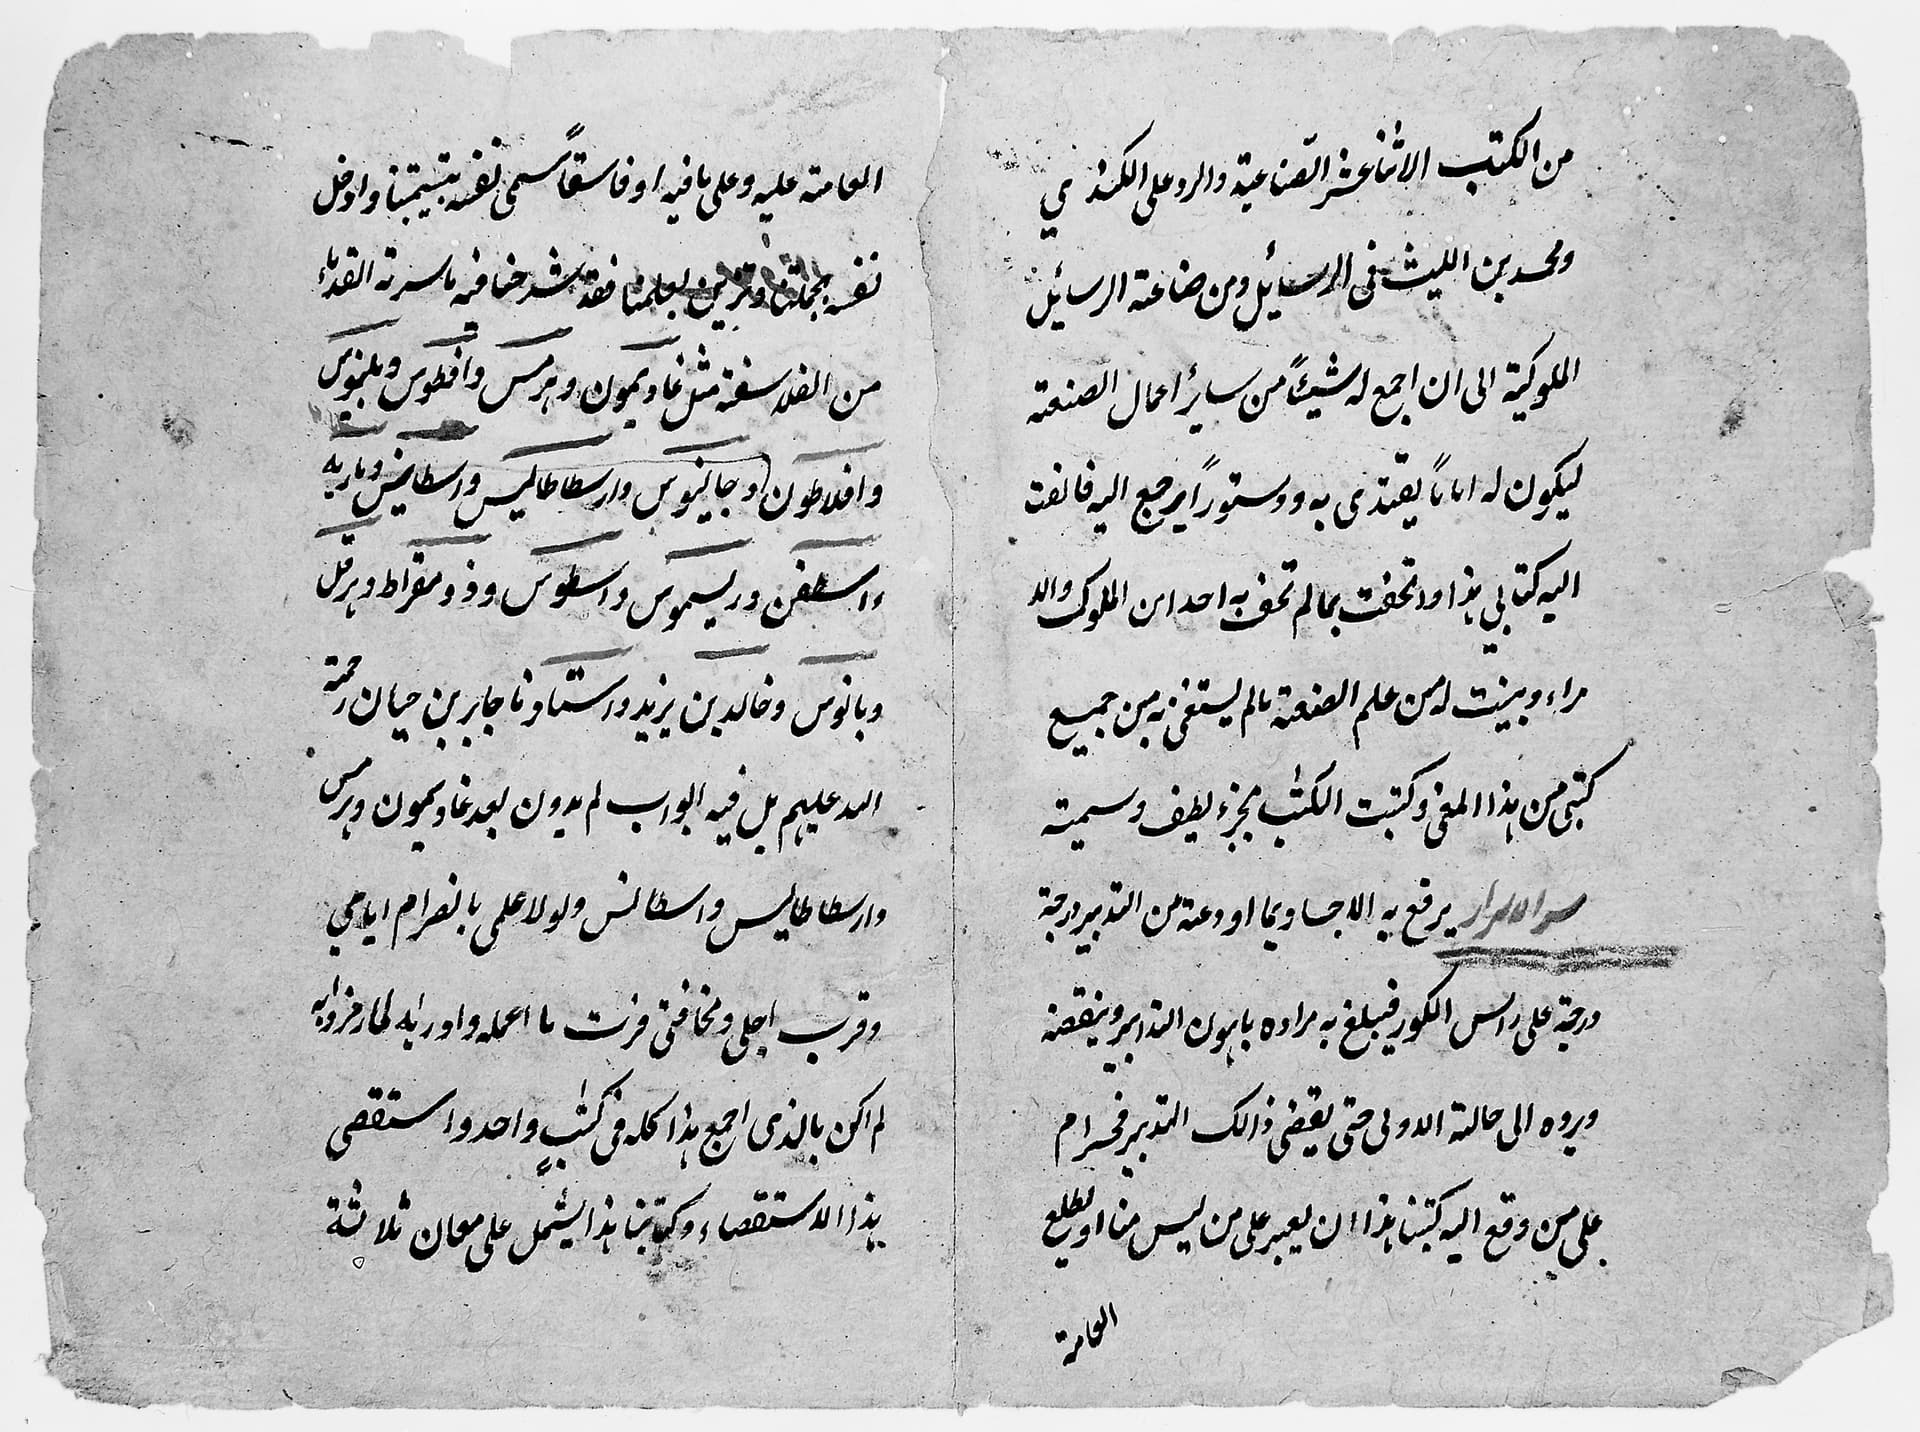 من الكتب الاثنا عشر الصّناعية والرد على الكندي
ومحمد بن الليث فى الرسائل ومن صناعة الرسائل
الملوكية الى ان اجمع له شيئاً من سائر اعمال الصنعة
ليكون له اماماً يقتدى به ودستوراً يرجع اليه فالفت
اليه كتابي هذا واتحفت بمالم تحف به احدا من الملوك والا
مراء وبينت له من علم الصنعة مالم يستغنى به من جميع
كتبى من هذا المعنى وكتبت الكتٰب بجزء لطيف وسميته
سر الاسرار يرفع به الاجساد بما اودعته من التدبير درجة
درجة على راس الكور فيبلغ به مراده باهون التدابير وينقصه
ويرده الى حالته الاولى حتى يقضى ذالك التدبير فحرام
على من وقع اليه كتبنا هذا ان يعبر على من ليس منا او يطلع
العامة
العامة عليه وعلى مافيه او فاسقاً سمى نفسه بتسيمتنا وادخل
نفسه بجملتنا وتزين بعلمنا فقد شرحنا فيه ماسرته القدماء
من الفلاسفة مثل غاديمون وهرمس وافطوس وبلنيوس
وافلاطون وجالينوس وارسطاطاليس واسطانس وماريه
واسطفن ودرسيموس واسطوس وذو مقراط وهرقل
وبانوس وخالد بن يزيد واستادنا جابر بن حيان رحمة
الله عليهم بل فيه ابواب لم يدون بعد غاديمون وهرمس
وارسطاطاليس واسطانس ولولا علمى بانصرام ايامي
وقرب اجلى ومخافتى فوت ما اعمله واوريه
لم اكن بالذى اجمع هذا كله فى كتٰبٍ واحد واستقصى
هذا الاستقصاء وكتابنا هذا يشمل على معان ثلاثة